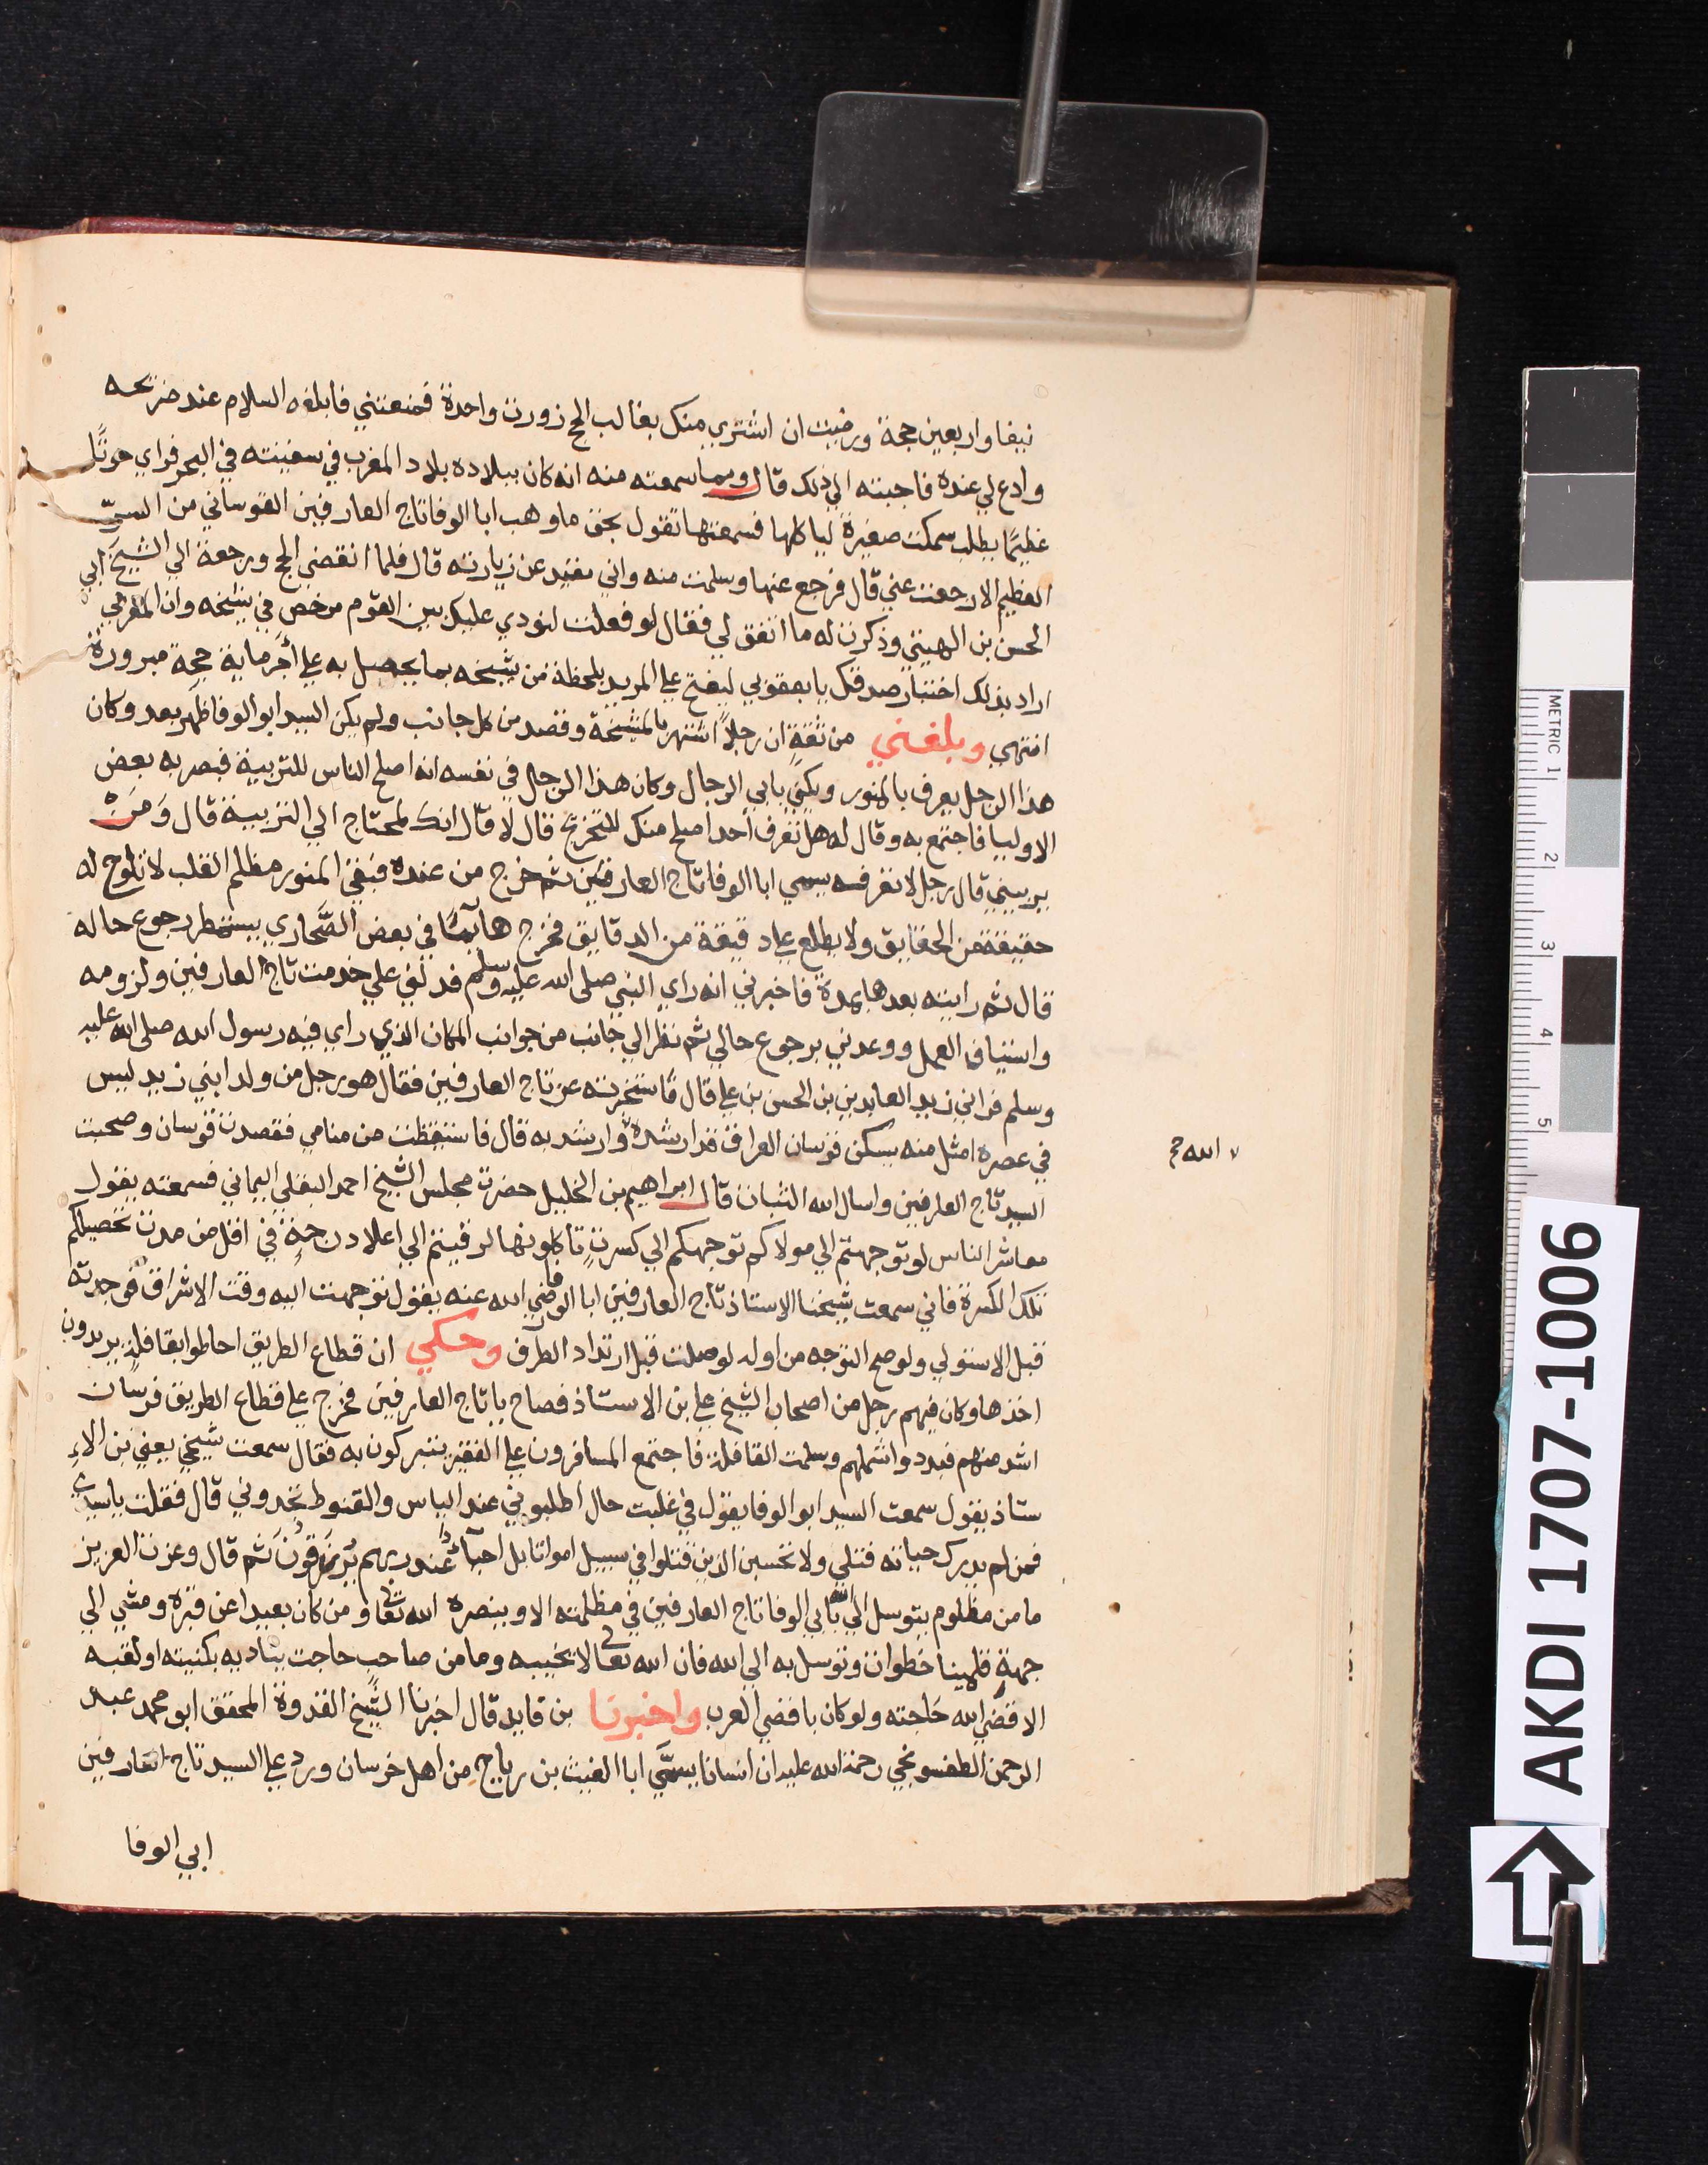 نيفا واربعين حجة ورضيت ان اشتري منك بغالب الحج زورت واحدة فمنعتني فابلغه السلام عند ضريحه
وادع لي عنده فاجبته الي ذلك قال ومما سمعته منه انه كان ببلاده بلاد المغرب في سفينته في البحر فراي حوتًا
عظيمًا يطلب سمكت صغيرة لياكلها فسمعتها تقول بحق ما وهب ابا الوفا تاج العارفين القوساني من السرّ
العظيم الا رجعت عني قال فرجع عنها وسلمت منه واني مقيد عن زيارته قال فلما انقضي الحج ورجعة الي الشيخ ابي
الحسن بن الهيتي وذكرت له ما اتفق لي فقال لو فعلت لنودي عليك بين القوم مرخص في شيخه وان المغربي
اراد بذلك اختبار صدقك يا يعقوبي ليفتح علي المريد بلحظة من شيخه بما يحصل به علي أجر ماية حجة مبرورة
انتهي وبلغني من ثقةٍ ان رجلاً اشتهر بالمشيخة وقصد من كل جانب ولم يكن السيد ابو الوفا ظهر بعد وكان
هذا الرجل يعرف بالمنور ويكني بابي الرجال وكان هذا الرجل في نفسه انه اصلح الناس للتربية فبصر به بعض
الاوليا فاجتمع به وقال له هل تعرف احدا اصلح منك للتخريج قال لا قال انك لمحتاج الي التربية قال وَمَنْ
يربيني قال رجل لا تعرفه يسمي ابا الوفا تاج العارفين ثم خرج من عنده فبقي المنور مظلم القلب لا تلوح له
حقيقة من الحقايق ولا يطلع علي دقيقة من الدقايق فخرج هايما في بعض الصَّحاري يستنظر رجوع حاله
قال ثم رايته بعدها بمدة فاخبرني انه راي النبي صلي الله عليه وسلم فدلني علي خدمت تاج العارفين ولزومه
واستياف العمل ووعدني برجوع حالي ثم نظر الي جانب من جوانب المكان الذي راي فيه رسول الله صلي الله عليه
وسلم فراني زيد العابدين بن الحسن بن علي قال فاستخبرته عن تاج العارفين فقال هو رجل من ولد ابني زيد ليس
في عصره امثل منه يسكن قوسان العراق قد ارشده وارشد به قال فاستيقظت من منامي فقصدت قوسان وصحبت
السيد تاج العارفين واسال الله الثبات قال ابراهيم بن الخليل حضرت مجلس الشيخ احمد البقلي اليماني فسمعته يقول
معاشر الناس لو توجهتم الي مولاكم توجهكم الي كسرتٍ تاكلونها لرقيتم الي اعلا درجةٍ في اقل من مدت تحصيلكم
تلك الكسرة فاني سمعت شيخنا الاستاذ تاج العارفين ابا الوفا رضي الله عنه يقول توجهت اليه وقت الاشراق فوجدته
قبل الاستولي ولو صح التوجه من اوله لوصلت قبل ارتداد الطرف وحكي ان قطاع الطريق احاطوا بقافلةٍ يريدون
اخذها وكان فيهم رجل من اصحاب الشيخ علي بن الاستاذ فصاح يا تاج العارفين فخرج علي قطاع الطريق فرسان
اشد منهم فبددوا شملهم وسلمت القافلة فاجتمع المسافرون علي الفقير يتبركون به فقال سمعت شيخي يعني بن الاء
ستاذ يقول سمعت السيد ابو الوفا يقول في غلبت حال اطلبوني عند الياس والقنوط تجدوني قال فقلت يا سيدي
فمن لم يدرك حياته قتلي ولا تحسبن الذين قتلوا في سبيل امواتا بل احيآءٌ عند ربهم يُرْزَقُونَ ثم قال وعزت العزيز
ما من مظلوم يتوسل الي الله بابي الوفا تاج العارفين في مظلمته الا وينصره الله تعالي ومن كان بعيدا عن قبره ومشي الي
جهةِ قلمينا خطوات وتوسل به الي الله فان الله تعالي لا يخيبه وما من صاحب حاجت يناديه بكنيته او لقبه
الا قضي الله حَاجته ولو كان باقصي العرب واخبرنا بن قايد قال اخبرنا الشيخ القدوة المحقق ابو محمد عبد
الرحمن الطفسونجي رحمة الله عليه ان انسانا يسمَّي ابا الغيث بن رباح من اهل خرسان ورد علي السيد تاج العارفين
ابي الوفا
الله
METRIC 1 2 3 4 5
AKDI 1707-1006